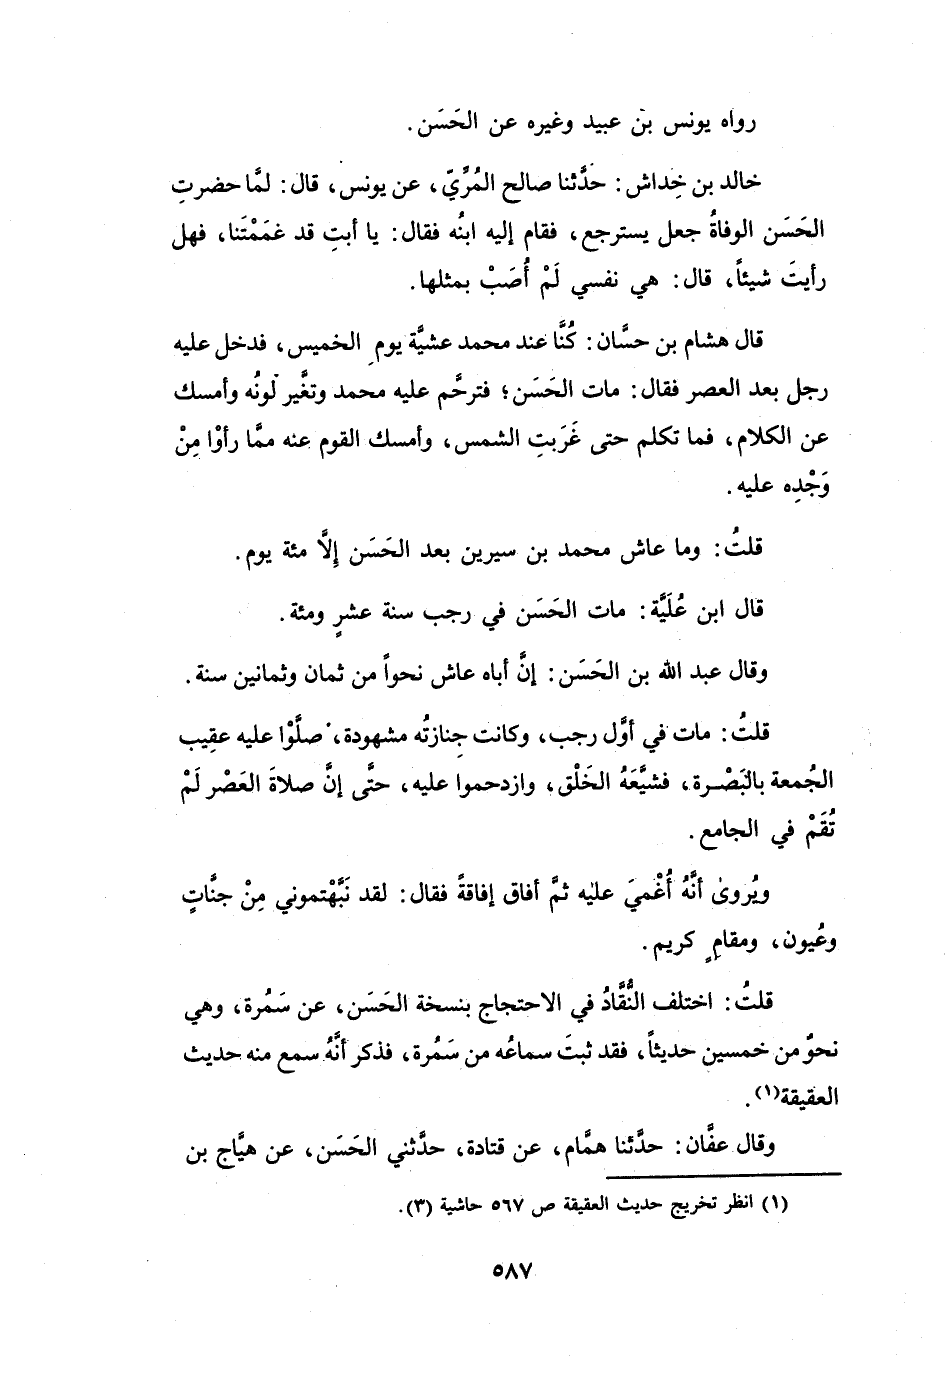 رواه يونس بن عبيد وغيره عن الحَسَن .
خالد بن خِداش : حَدَّثنا صالح المُرِّيّ ، عن يونس ، قال : لمَّا حضرتِ
الحَسَن الوفاةُ جعل يسترجع ، فقام إليه ابنُه فقال : يا أبتِ قد غمَمْتَنا ، فهل
رأيتَ شيئاً ، قال : هي نفسي لَمْ أُصَبْ بمثلها .
قال هشام بن حسَّان : كُنَّا عند محمد عشيَّة يومِ الخميس ، فدخل عليه
رجل بعد العصر فقال : مات الحَسَن ؛ فترحَّم عليه محمد وتغَّير لونُه وأمسك
عن الكلام ، فما تكلم حتى غَرَبتِ الشمس ، وأمسك القوم عنه ممَّا رأوْا مِنْ
وَجْدِه عليه .
قلتُ : وما عاش محمد بن سيرين بعد الحَسَن إلَّا مئة يوم .
قال ابن عُلَيَّة : مات الحَسَن في رجب سنة عشرٍ ومئة .
وقال عبد الله بن الحَسَن : إنَّ أباه عاش نحواً من ثمان وثمانين سنة .
قلتُ : مات في أوَّل رجب ، وكانت جنازتُه مشهودة ، صلَّوْا عليه عقِيب
الجُمعة بالبَصْرة ، فشيَّعَهُ الخَلْق ، وازدحموا عليه ، حتَّى إنَّ صلاةَ العَصْر لَمْ
تُقَمْ في الجامع .
ويُروىٰ أنَّهُ أُغْميَ عليه ثمَّ أفاق إفاقةً فقال : لقد نَبَّهْتموني مِنْ جنَّاتٍ
وعُيون ، ومقامٍ كريم .
قلتُ : اختلف النُّقَّادُ في الاحتجاج بنسخة الحَسَن ، عن سَمُرة ، وهي
نحوٌ من خمسين حديثاً ، فقد ثبتَ سماعُه من سَمُرة ، فذكر أنَّهُ سمع منه حديث
العقيقة(١) .
وقال عفَّان : حدَّثنا همَّام ، عن قتادة ، حدَّثني الحَسَن ، عن هيَّاج بن
(١) انظر تخريج حديث العقيقة ص ٥٦٧ حاشية (٣) .
٥٨٧